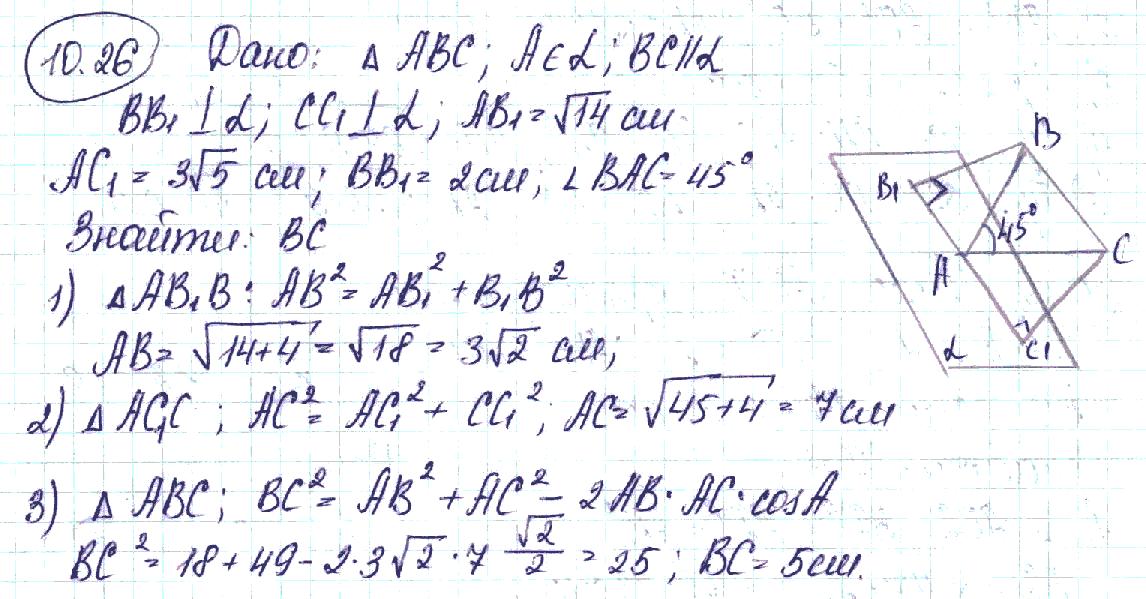 10.26 Дано: Δ ABC; A∈α; BC∥α
BB₁⊥α; CC₁⊥α; AB₁=√14 см
AC₁=3√5 см; BB₁=2см; ∠BAC=45°
Знайти: BC
1) ΔAB₁B: AB²=AB₁²+B₁B²
AB=√14+4=√18=3√2 см;
2) ΔAC₁C; AC²=AC₁²+CC₁²; AC=√45+4=7см
3) ΔABC; BC²=AB²+AC²-2AB·AC·cosA
BC²=18+49-2·3√2·7 √2/2=25; BC=5см.
B
B₁
45°
A
C
C₁
α